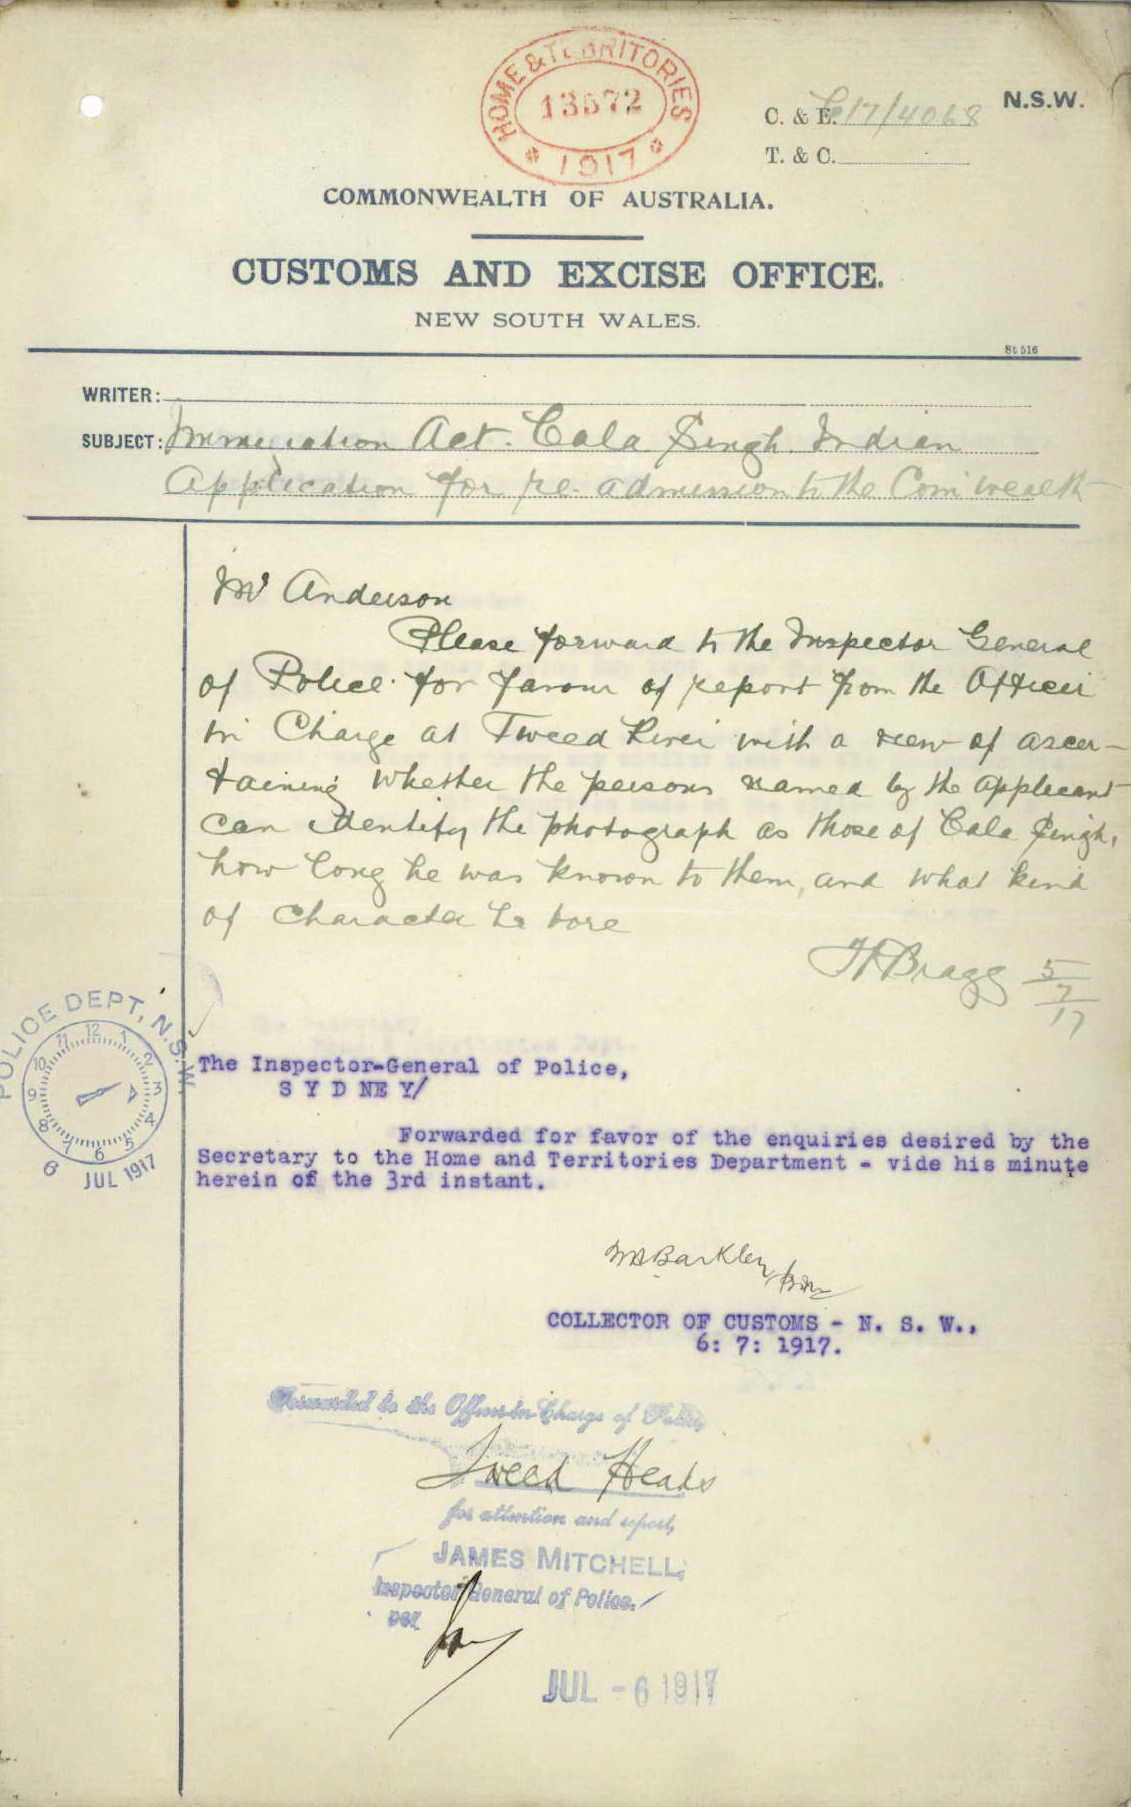 HOME & TERRITORIES
13572
* 1917 *
N.S.W.
C. & E. 17/4068
T. & C.
COMMONWEALTH OF AUSTRALIA.
CUSTOMS AND EXCISE OFFICE.
NEW SOUTH WALES.
St 516
WRITER:
SUBJECT: Immigration Act. Cala Singh. Indian
Application for re-admission to the Com'wealth
Mr Anderson
Please forward to the Inspector General
of Police for favour of report from the Officer
in Charge at Tweed River with a view of ascer-
taining whether the persons named by the applicant
can identify the photograph as those of Cala Singh,
how long he was known to them, and what kind
of character he bore
HBragg 5/7/17
POLICE DEPT, N.S.W.
12 1 2 3 4 5 6 7 8 9 10 11
6 JUL 1917
The Inspector-General of Police,
S Y D NE Y/
Forwarded for favor of the enquiries desired by the
Secretary to the Home and Territories Department - vide his minute
herein of the 3rd instant.
Barkley
COLLECTOR OF CUSTOMS - N. S. W.,
6: 7: 1917.
Forwarded to the Officer-in-Charge of Police,
Tweed Heads
for attention and report,
JAMES MITCHELL,
Inspector General of Police.
per
JUL -6 1917